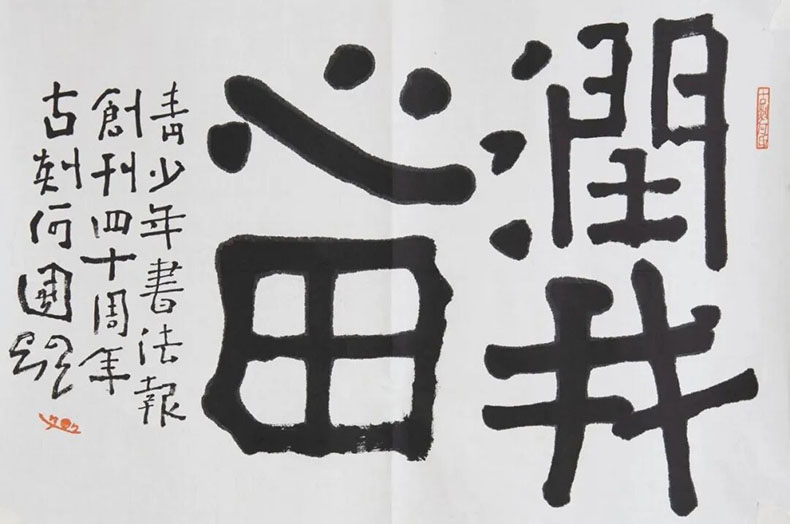 潤我
心田
青少年書法報
創刊四十周年
古剡何國門